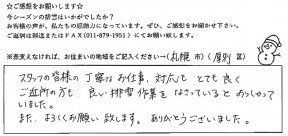 ☆ご感想をお願いします☆
今シーズンの排雪はいかがでしたか?
お客様の声が、私たちの原動力になっています。ぜひ、ご感想をお聞かせ下さい。
ご返例は郵送またはFAX(011-879-1951)にてお願い致します。
※差支えなければ、お住まいの地域をご記入ください→(札幌 市)(厚別 区)
スタッフの皆様の丁寧なお仕事、対応もとても良く
ご近所の方も、良い排雪作業をなさっているとおっしゃって
いました。
また、よろしくお願い致します。ありがとうございました。